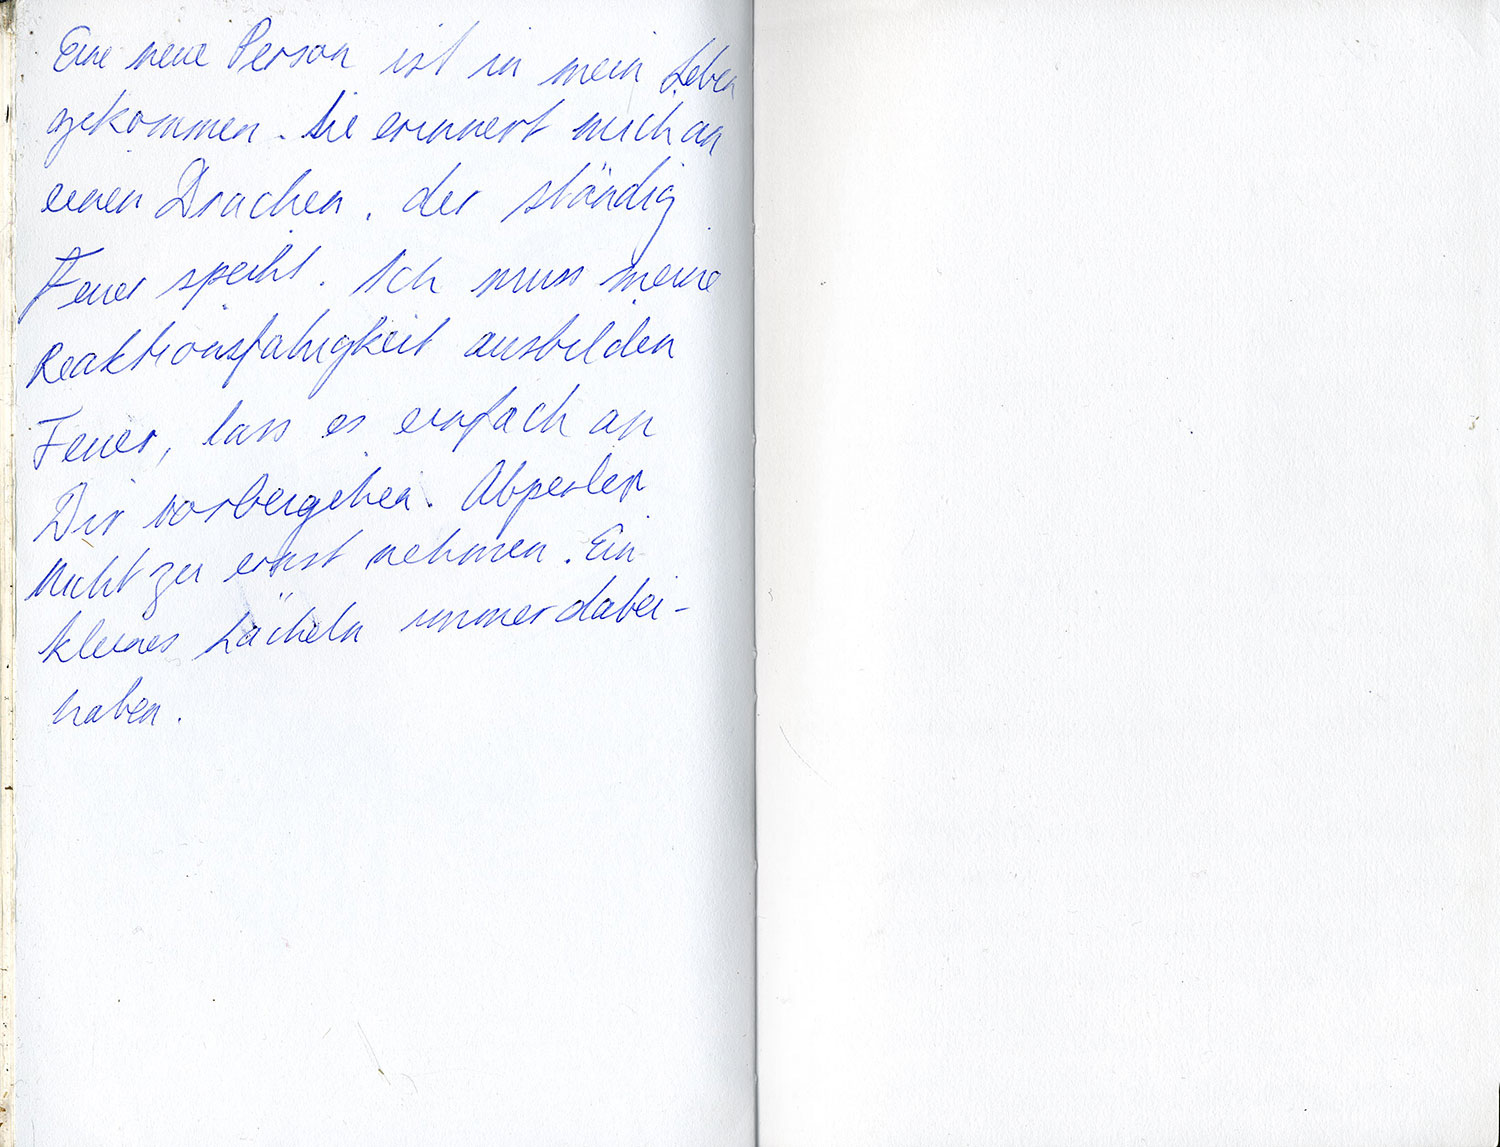 Eine neue Person ist in mein Leben
gekommen. Sie erinnert mich an
einen Drachen, der ständig
Feuer speiht. Ich muss meine
Reaktionsfähigkeit ausbilden
Feuer, lass es einfach an
Dir vorbeigehen. Abperlen
Nicht zu ernst nehmen. Ein
kleines Lächeln immer dabei-
haben.